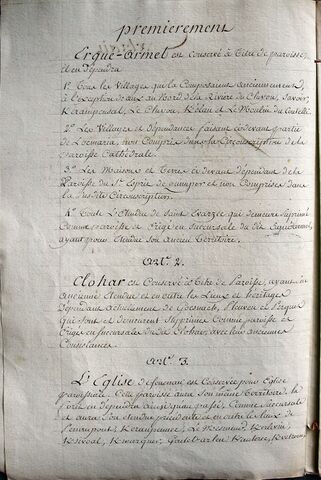 premierement
Ergué-Armel est conservé à titre de paroisse,
et en dépendra
1° Tous les Villages qui la Composaient anciennement,
à l'exception de ceux au Nord de la Riviere du Cleuyou, savoir,
Keranpensal, Le Cleuyou, Kelan et Le Moulin du
2° Les Villages et dépendances faisant ci-devant partie
de Locmaria, non Compris dans la Circonscription de la
Paroisse Cathédrale.
3° Les Maisons et terres ci devant dépendant de la
Paroisse du St Esprit de quimper et non Comprises dans
la susdite Circonscription.
4° Toute L'Etendue de Saint Evarzec qui demeure supprimé
Comme paroisse et Erigé en succursale du dit Erguéarmel,
ayant pour étendue son ancien territoire.
Art. 2.
Clohar est Conservé à titre de Paroisse, ayant son
ancienne étendue et en outre les Lieux et héritages
dépendant actuellement de Gouesnach, Pleuven et Perguet
qui sont et demeurent supprimés Comme paroisse et
Erigés en succursales du dit Clohar, avec leurs anciennes
Consistances.
Art. 3.
L'Eglise de fouenan est Conservée pour Eglise
paroissiale. Cette paroisse aura son même territoire, la
forêt en dépendra ainsi que par le passé, Comme succursale
et aura son étendue précédente et en outre le lieu de
Penanpont, Keranpennec, Le Mesmeur, Kervin,